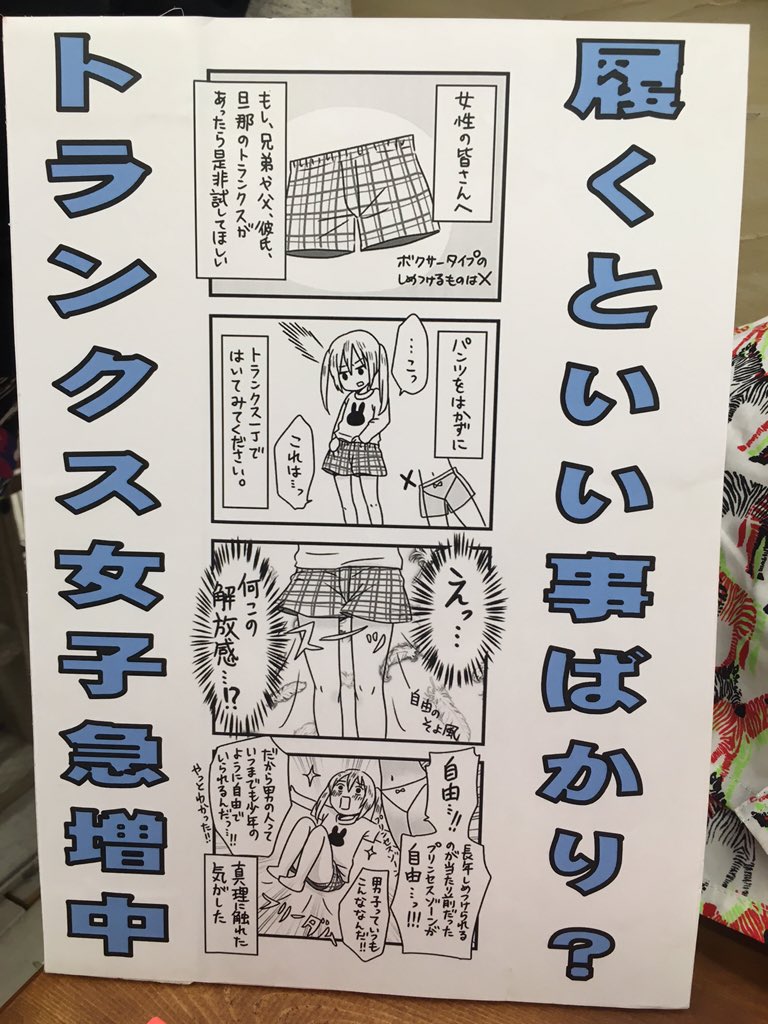 履くといい事ばかり？
トランクス女子急増中
女性の皆さんへ
もし、兄弟や父、彼氏、
旦那のトランクスが
あったら是非試してほしい
ボクサータイプの
しめつけるものは×
パンツをはかずに
…こっ
これは…っ
トランクス一丁で
はいてみてください。
×
えっ…
何この
解放感…!?
スーッ
自由の
そよ風
自由…!!
長年しめつけられる
のが当たり前だった
プリンセスゾーンが
自由…っ!!!
プリンセスゾーン
男子っていつも
こんななんだ!!
だから男の人って
いつまでも少年の
ように自由で
いられるんだっ…!!!
やっとわかった!!
フリーダム
真理に触れた
気がした